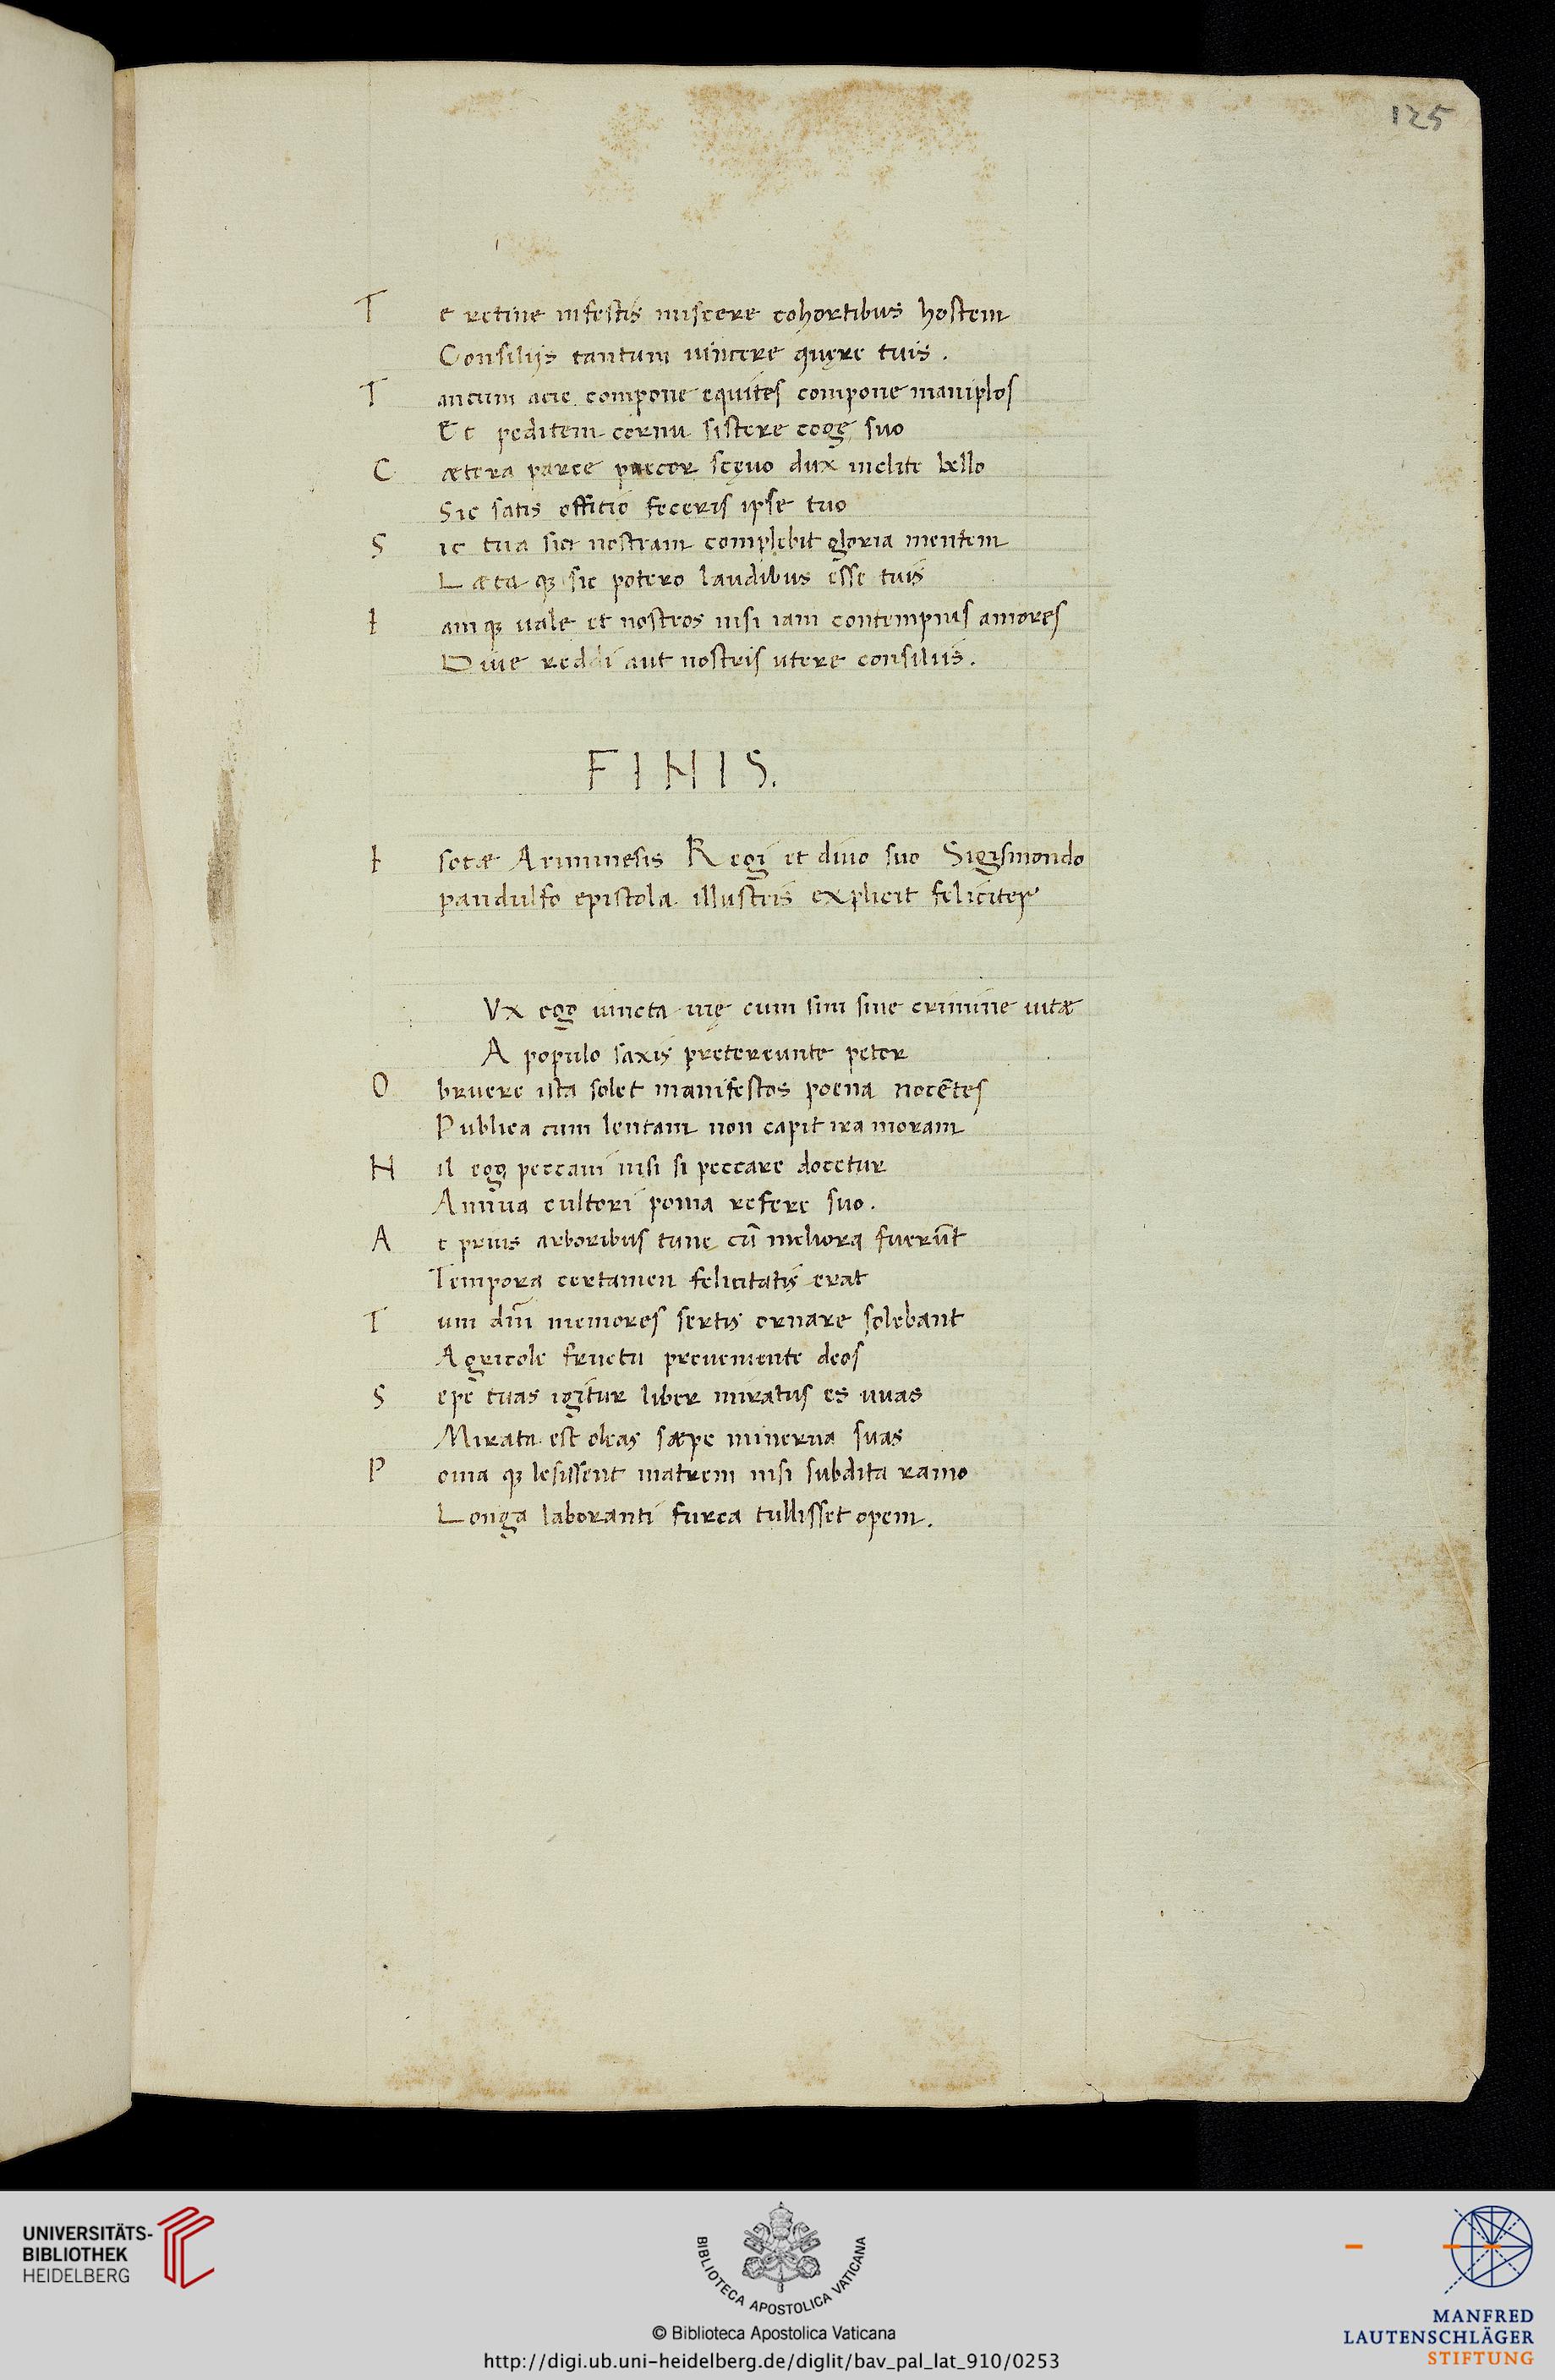 125
T e retine infestis miscere cohortibus hostem
Consilijs tantum uincere quęre tuis.
T antum acie compone equites compone maniplos
Et peditem cornu sistere coge suo
C ætera parce precor sęuo dux inclite bello
Sic satis officio feceris ipse tuo
S ic tua sic nostram complebit gloria mentem
Læta qȝ sic potero laudibus esse tuis
I am qȝ uale et nostros nisi iam contempnis amores
Diue reddi aut nostris utere consiliis.
FINIS.
I sotæ Ariminesis Regi et diuo suo Sigismondo
pandulfo epistola illustris explicit feliciter
Vx ego iuncta uię cum sim sine crimine uitæ
A populo saxis pretereunte petor
O bruere ista solet manifestos poena nocētes
Publica cum lentam non capit ira moram
N il ego peccaui nisi si peccare docetur
Annua cultori poma refere suo.
A t prius arboribus tunc cū meliora fuerūt
Tempora certamen felicitatis erat
T um dn̄i memores sertis ornare solebant
Agricole fructu preueniente deos
S epe tuas igitur liber miratus es uuas
Mirata est oleas sæpe minerua suas
P oma qȝ lesissent matrem nisi subdita ramo
Longa laboranti furca tullisset opem.
UNIVERSITÄTS-
BIBLIOTHEK
HEIDELBERG
BIBLIOTECA APOSTOLICA VATICANA
© Biblioteca Apostolica Vaticana
http://digi.ub.uni-heidelberg.de/diglit/bav_pal_lat_910/0253
MANFRED
LAUTENSCHLÄGER
STIFTUNG